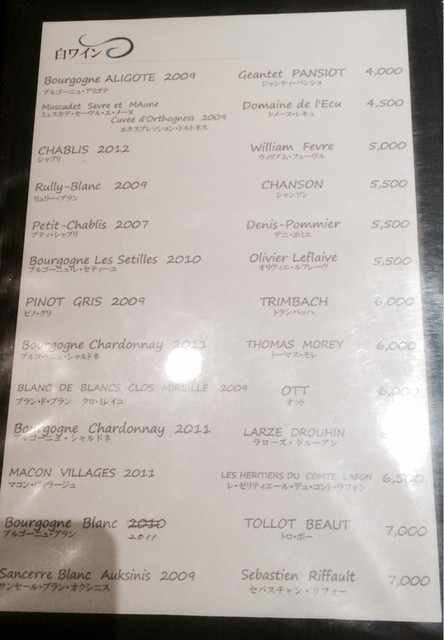 白ワイン
Bourgogne ALIGOTE 2009 Geantet PANSIOT 4,000
ブルゴーニュ・アリゴテ ジャンティ・パンショ
Muscadet Sevre et MAune Domaine de l'Ecu 4,500
ミュスカデ・セーヴル・エ・メーヌ ドメーヌ・レキュ
Cuvee d'Orthogness 2009
エクスプレッション・ドルトネス
CHABLIS 2012 William Fevre 5,000
シャブリ ウィリアム・フェーヴル
Rully-Blanc 2009 CHANSON 5,500
リュリー・ブラン シャンソン
Petit-Chablis 2007 Denis-Pommier 5,500
プティ・シャブリ デニ・ポミエ
Bourgogne Les Setilles 2010 Olivier Leflaive 5,500
ブルゴーニュ・レ・セティーユ オリヴィエ・ルフレーヴ
PINOT GRIS 2009 TRIMBACH 6,000
ピノ・グリ トランバッハ
Bourgogne Chardonnay 2011 THOMAS MOREY 6,000
ブルゴーニュ・シャルドネ トーマス・モレ
BLANC DE BLANCS CLOS MIREILLE 2009 OTT 6,000
ブラン・ド・ブラン クロ・ミレイユ オット
Bourgogne Chardonnay 2011 LARZE DROUHIN
ブルゴーニュ・シャルドネ ラローズ・ドルーアン
MACON VILLAGES 2011 LES HERITIERS DU COMTE LAFON 6,500
マコン・ヴィラージュ レ・ゼリティエール・デュ・コント・ラフォン
Bourgogne Blanc 2010 TOLLOT BEAUT 7,000
ブルゴーニュ・ブラン 2011 トロ・ボー
Sancerre Blanc Auksinis 2009 Sebastien Riffault 7,000
サンセール・ブラン・オクシニス セバスチャン・リフォー